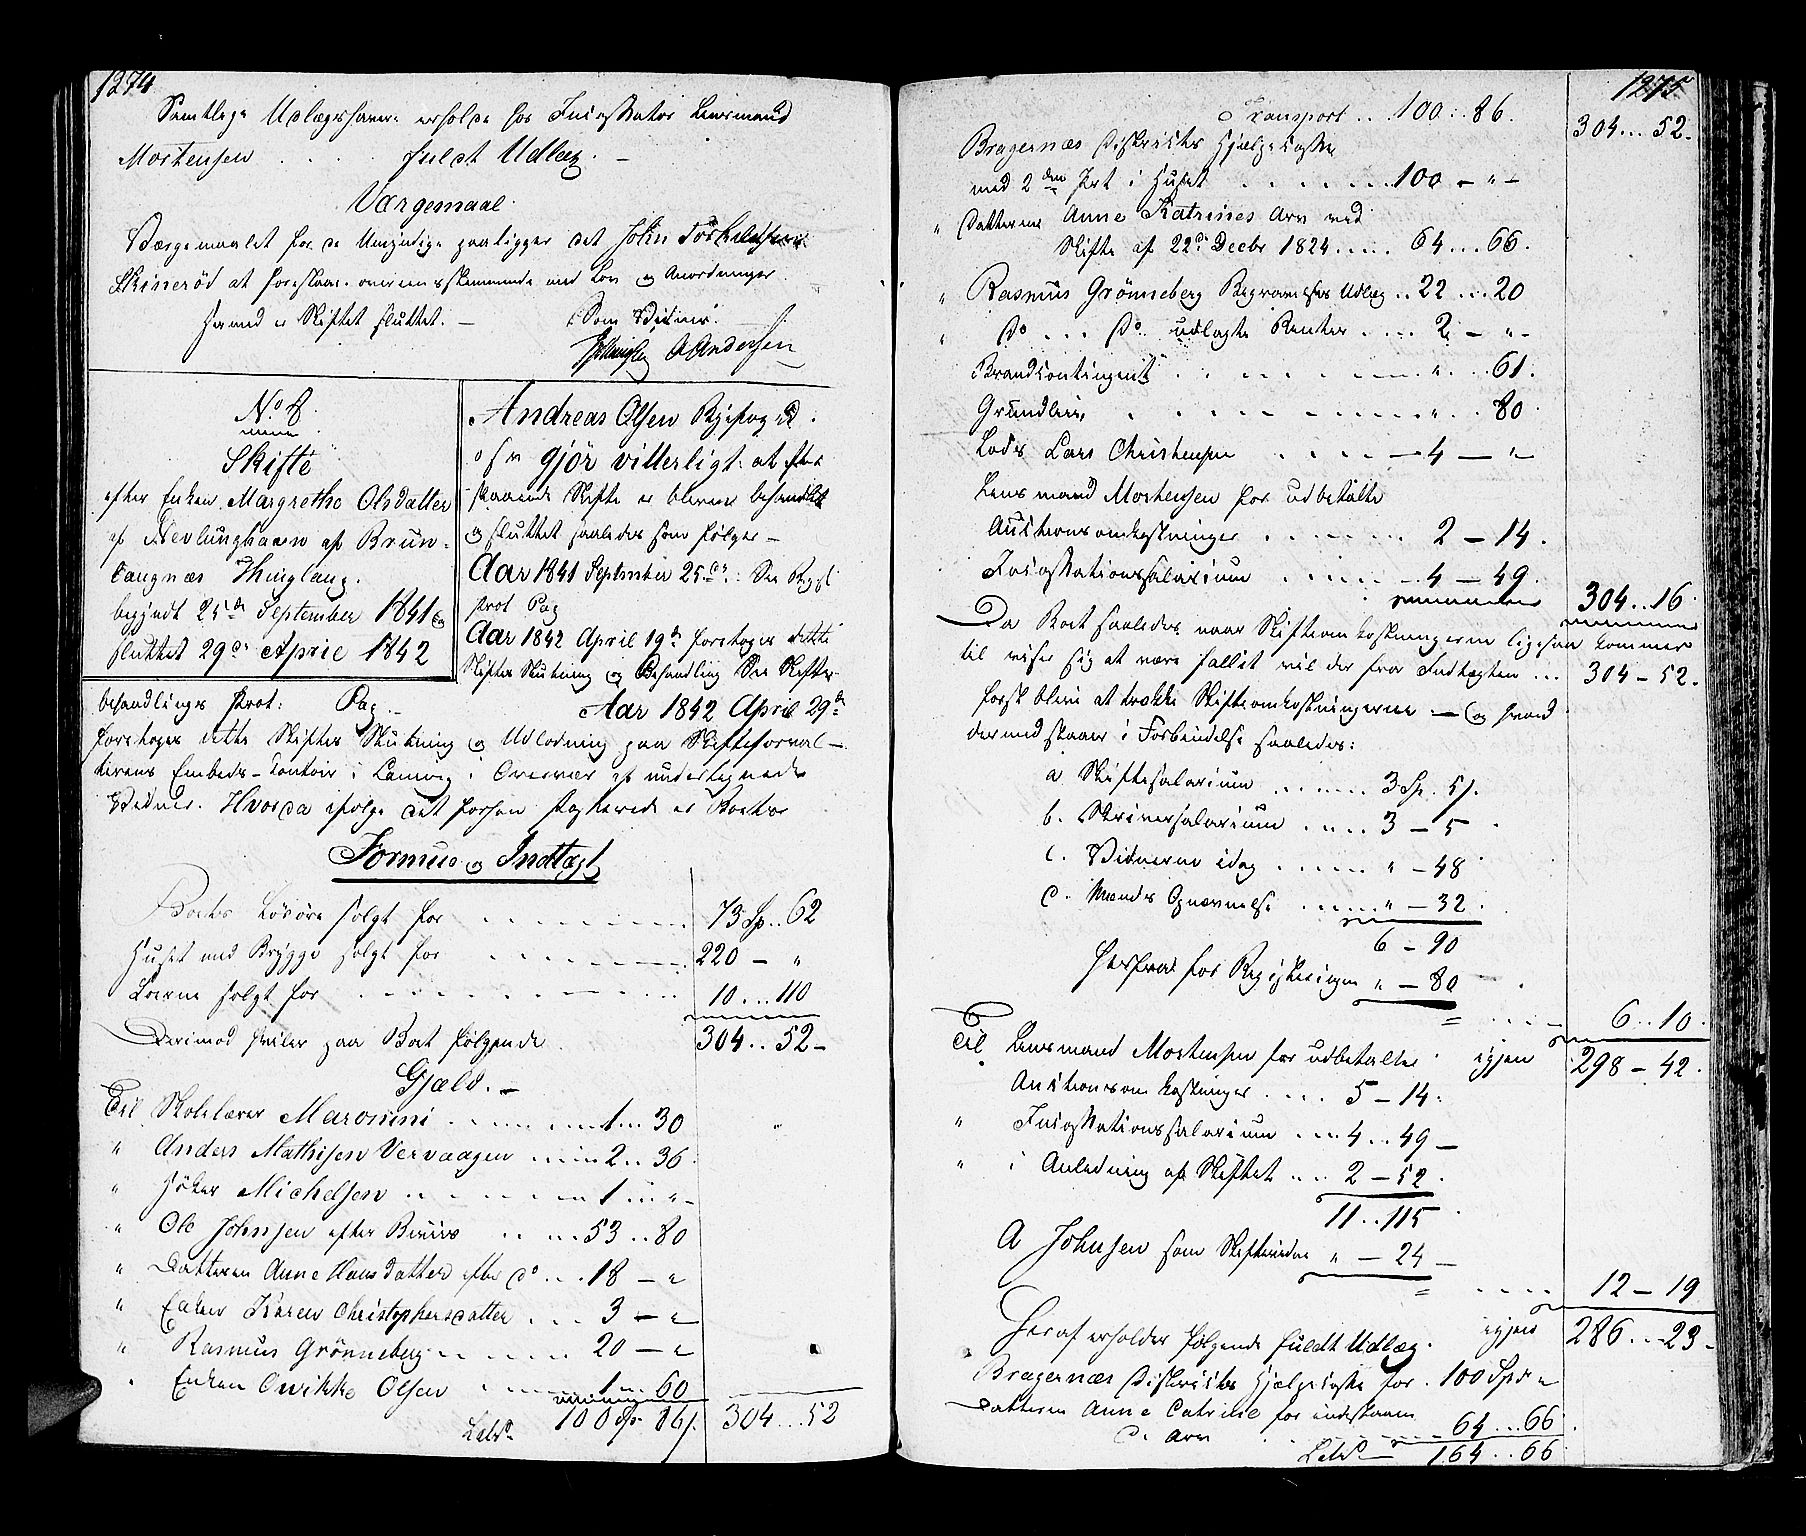 1274
Samtlige Udlægshavere erholde hos Incassator Lensmand
Mortensen . . . fuldt Udlæg. –
Værgemaal.
Værgemaalet for de Umyndige paaligger det John Torkildsen
Skinerød at forestaae overensstemmende med Lov og Anordninger
hermed er Skiftet sluttet. –
Som Vidner.
AAndersen
No 8.
Skifte
efter Enken Margrethe Olsdatter
af Nevlunghavn af Brun-
langnæs Thinglaug.
begyndt 25de September 1841 og
sluttet 29de April 1842
Andreas Olsen Byfoged.
o s v gjör vitterligt: at efter
staaende Skifte er bleven behandlet
og sluttet saaledes som følger –
Aar 1841 September 25de: See Regst
Prot Pag
Aar 1842 April 19de foretoges dette
Skiftes Slutning og Behandling See Skifte-
behandlings Prot: Pag. –
Aar 1842 April 29de
foretoges dette Skiftes Slutning og Udlodning paa Skifteforval-
terens Embeds-Contoir i Laurvig i Overvær af undertegnede
Vidner. Hvorda ifølge det forhen passerede er Boets
Formue og Indtægt
Boets Løsøre solgt for . . . 73 Sp. 62
Huset med Brygge solgt for . . . 220 – "
solgt for . . . 10 . . 110
Derimod hviler paa Boet følgende
304 . . 52 –
Gjæld. –
Til Skolelærer Maronini . . . 1 . . 30
" Anders Mathisen Vervaagen . . . 2 . . 36
" Høker Michelsen . . . 1 . . " –
" Ole Johnsen efter Beviis . . . 53 . . 80
" Datteren Anne Hansdatter efter do . . 18 – "
" Enken Karen Christophersdatter . . . 3 – "
" Rasmus Grönneberg . . . 20 – "
" Enken Owikke Olsen . . . 1 . . 60
Lateris 100 Sp. 86 s. 304 . . 52
1275
Transport . . 100 . . 86.
304 . . 52.
Bragernæs Districts Hjælpecasse
med 2den Prt i Huset . . . 100 – " –
" Datteren Anne Katrines Arv ved
Skifte af 22de Decbr 1824 . . . 64 . . 66.
" Rasmus Grönneberg Begravelses Udlæg . . 22 . . 20
" Do . . . Do udlagte Renter . . . 2 – " –
Brandcontingent . . . " . . 61.
Grundleie . . . " . . 80
Lods Lars Christensen . . . 4 – "
Lensmand Mortensen for udbetalte
Auctionsomkostninger . . . 2 – 14.
Incassationssalarium . . . 4 – 49.
304 . . 16
Da Boet saaledes naar Skifteomkostningerne ligesaa kommer
til viser sig at være fallit vil der fra Indtægten . . . 304 – 52.
først blive at trække Skifteomkostningerne – og hvad
dermed staaer i Forbindelse saaledes:
a Skiftesalarium . . . 3 Sp. 5 s.
b. Skriversalarium . . . 3 – 5
c. Vidnerne idag . . . " – 48
d. Mænds Opnævnelse . . . " – 32
6 – 90
Herfra for Registeringen " – 80
= . . . – 6 . . 10.
igjen 298 – 42.
Til Lensmand Mortensen for udbetalte
Auctionsomkostninger . . . 5 – 14.
" Incassationssalarium . . . 4 . . 49 –
" i Anledning af Skiftet . . . 2 – 52.
11 . . 115
A Johnsen som Skiftevidne " – 24 –
= . . . . 12 – 19
igjen 286 . . 23 –
Heraf erholder følgende fuldt Udlæg.
Bragernæs Districts Hjælpecasse for . 100 Spd "
Datteren Anne Catrine for indestaaen
d. Arv . . . 64 . . 66
Lateris 164 . . 66